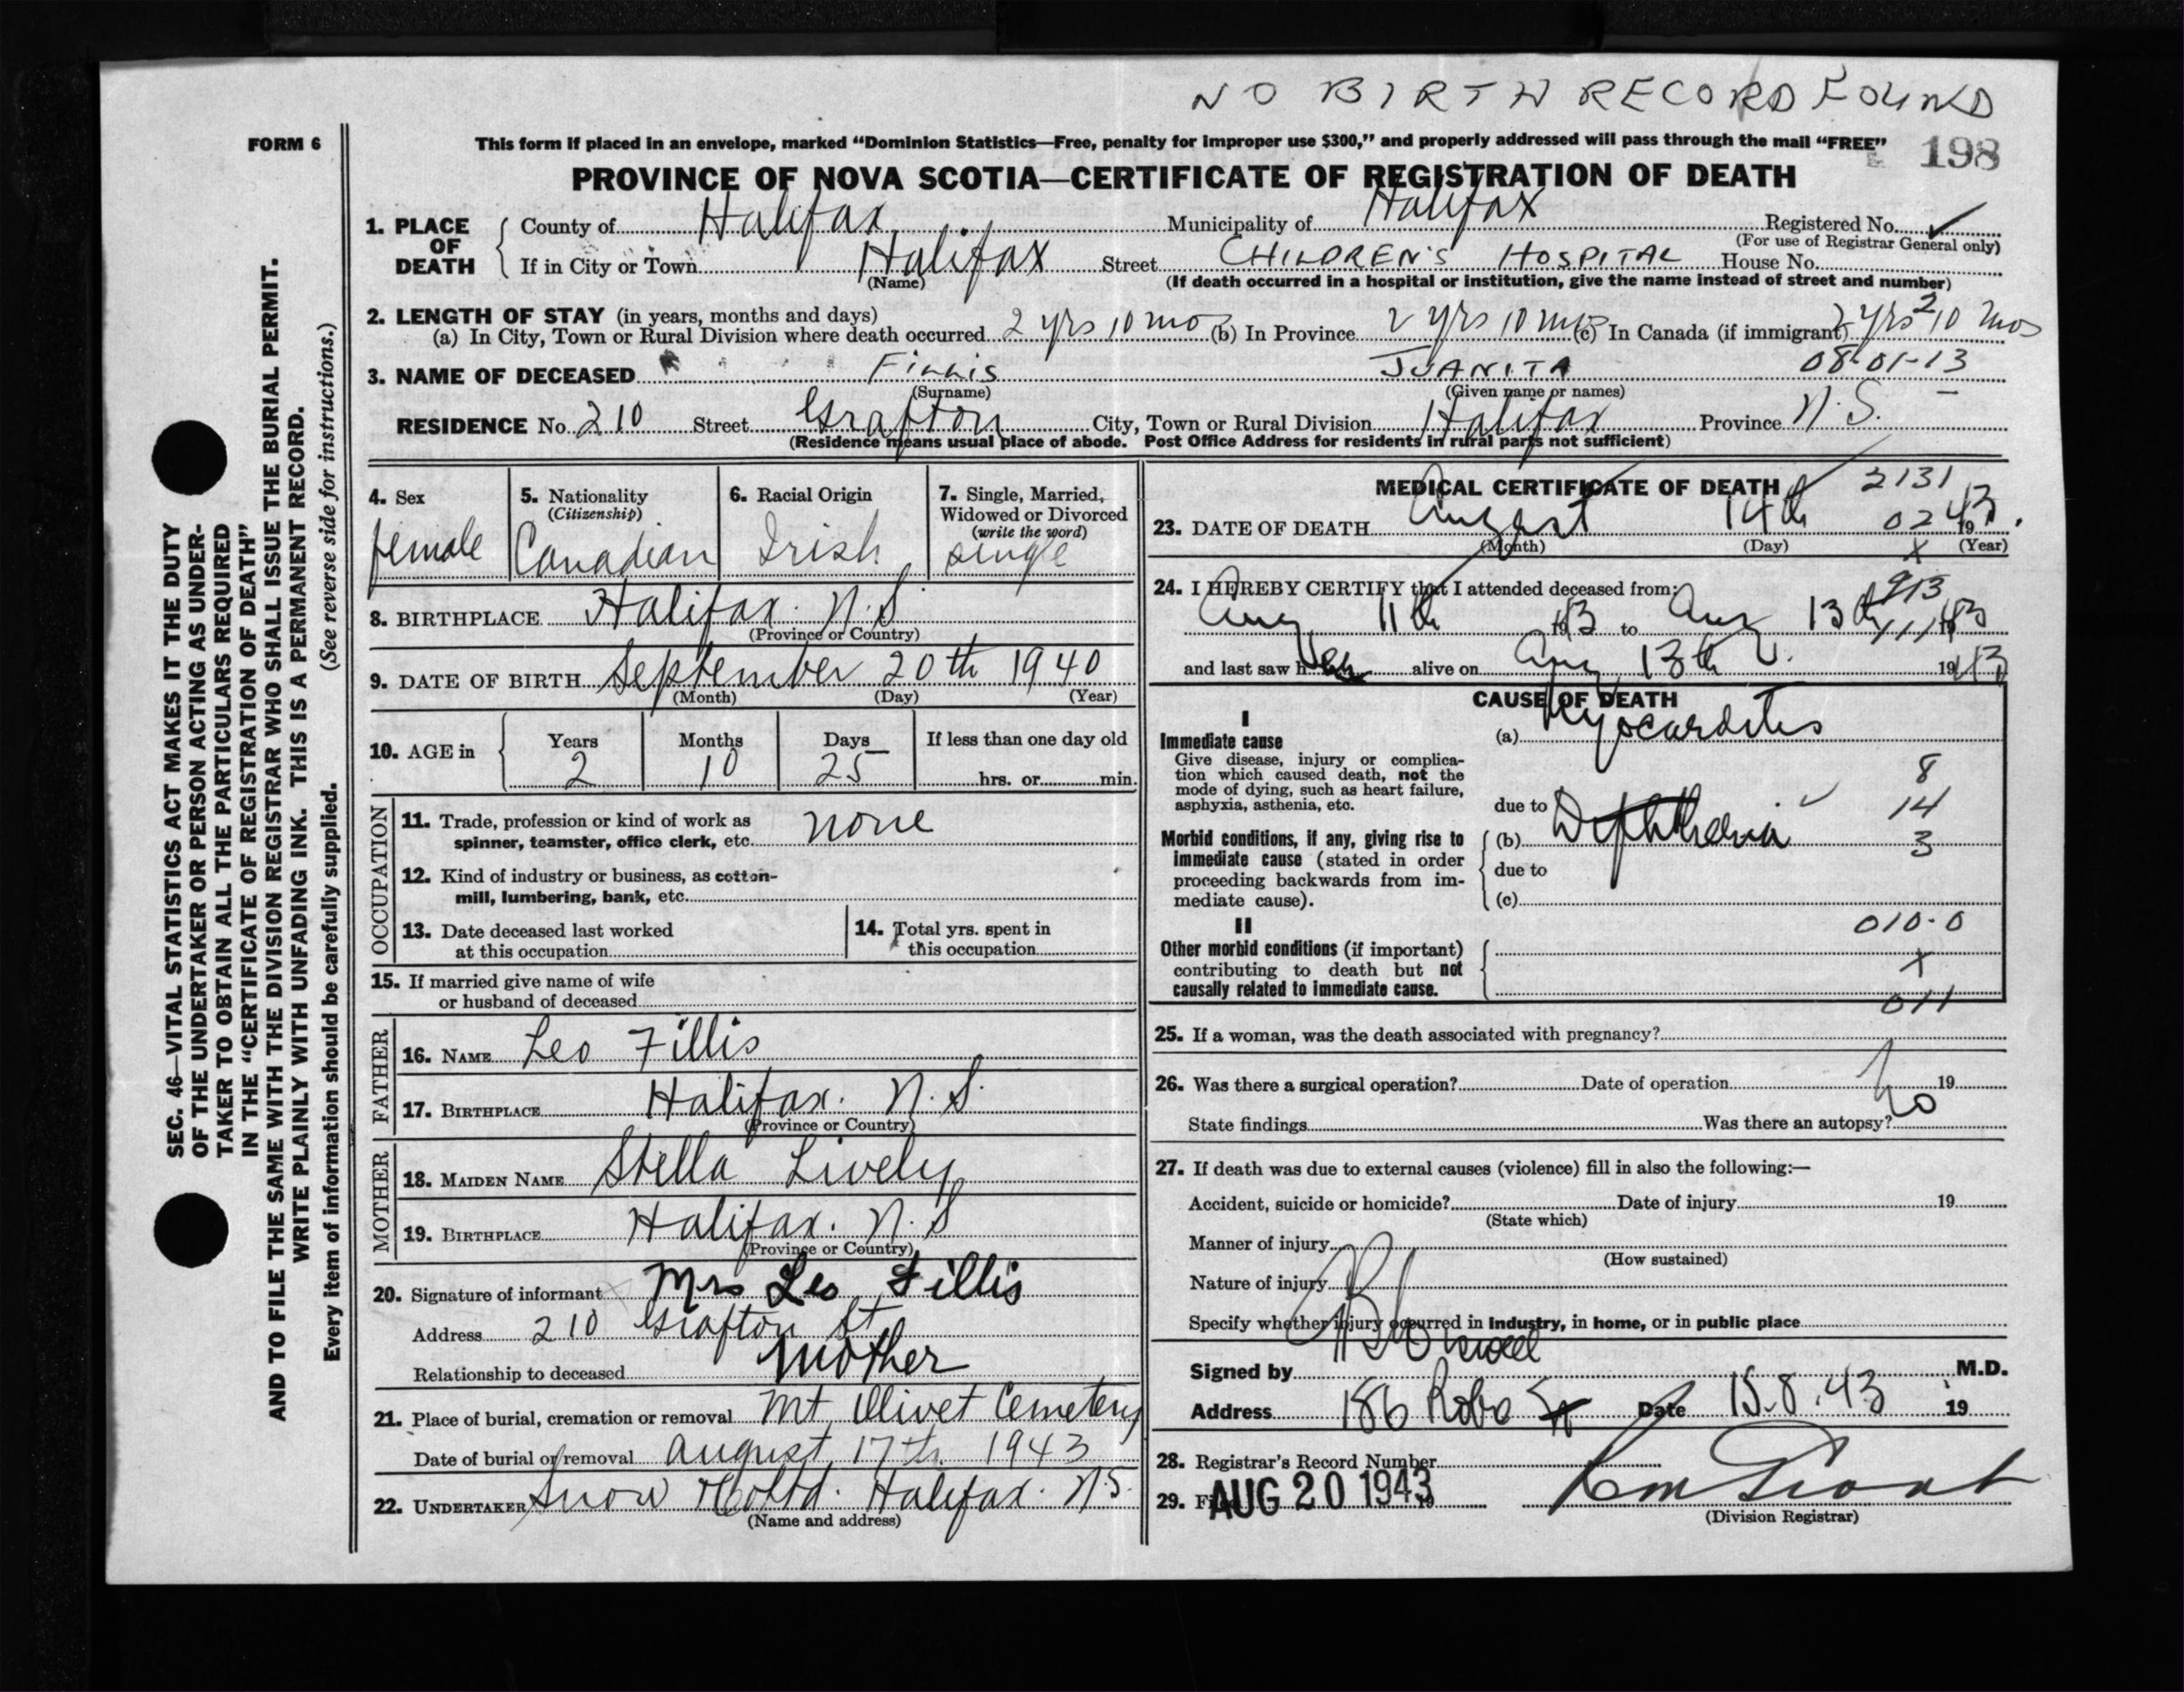 NO BIRTH RECORD FOUND
FORM 6
This form if placed in an envelope, marked "Dominion Statistics—Free, penalty for improper use $300," and properly addressed will pass through the mail "FREE"
198
PROVINCE OF NOVA SCOTIA—CERTIFICATE OF REGISTRATION OF DEATH
1. PLACE OF DEATH County of Halifax Municipality of Halifax Registered No. ✓
(For use of Registrar General only)
If in City or Town Halifax Street CHILDREN'S HOSPITAL House No.
(Name) (If death occurred in a hospital or institution, give the name instead of street and number)
2. LENGTH OF STAY (in years, months and days)
(a) In City, Town or Rural Division where death occurred 2 yrs 10 mo (b) In Province 2 yrs 10 mos (c) In Canada (if immigrant) 2 yrs 10 mos
2
3. NAME OF DECEASED FILLIS JUANITA 08-01-13
(Surname) (Given name or names)
RESIDENCE No. 210 Street Grafton City, Town or Rural Division Halifax Province N.S.
(Residence means usual place of abode. Post Office Address for residents in rural parts not sufficient)
4. Sex
female
5. Nationality
(Citizenship)
Canadian
6. Racial Origin
Irish
7. Single, Married,
Widowed or Divorced
(write the word)
single
8. BIRTHPLACE Halifax. N.S.
(Province or Country)
9. DATE OF BIRTH September 20th 1940
(Month) (Day) (Year)
10. AGE in Years Months Days If less than one day old
2 10 25 hrs. or min.
OCCUPATION
11. Trade, profession or kind of work as
spinner, teamster, office clerk, etc. none
12. Kind of industry or business, as cotton-
mill, lumbering, bank, etc.
13. Date deceased last worked
at this occupation
14. Total yrs. spent in
this occupation
15. If married give name of wife
or husband of deceased
FATHER
16. NAME Leo Fillis
17. BIRTHPLACE Halifax. N.S.
(Province or Country)
MOTHER
18. MAIDEN NAME Stella Lively
19. BIRTHPLACE Halifax. N.S
(Province or Country)
20. Signature of informant Mrs Leo Fillis
Address 210 Grafton St
Relationship to deceased Mother
21. Place of burial, cremation or removal Mt Olivet Cemetery
Date of burial or removal August 17th 1943
22. UNDERTAKER Snow & Co Ltd. Halifax. N.S.
(Name and address)
MEDICAL CERTIFICATE OF DEATH
2131
23. DATE OF DEATH August 14th 02 1943
(Month) (Day) (Year)
x
24. I HEREBY CERTIFY that I attended deceased from:
913
Aug 11th 1943 to Aug 13th 1943
111
and last saw her alive on Aug 13th 1943
CAUSE OF DEATH
I
Immediate cause
Give disease, injury or complica-
tion which caused death, not the
mode of dying, such as heart failure,
asphyxia, asthenia, etc.
(a) Myocarditis
8
due to 14
Morbid conditions, if any, giving rise to
immediate cause (stated in order
proceeding backwards from im-
mediate cause).
(b) Diphtheria ✓ 3
due to
(c)
II
010-0
Other morbid conditions (if important)
contributing to death but not
causally related to immediate cause.
x
011
25. If a woman, was the death associated with pregnancy?
26. Was there a surgical operation? Date of operation 19
State findings Was there an autopsy? No
27. If death was due to external causes (violence) fill in also the following:—
Accident, suicide or homicide? Date of injury 19
(State which)
Manner of injury
(How sustained)
Nature of injury
Specify whether injury occurred in industry, in home, or in public place
Signed by M.D.
Address 186 Robie St Date 15.8.43 19
28. Registrar's Record Number
29. AUG 20 1943
(Division Registrar)
SEC. 46—VITAL STATISTICS ACT MAKES IT THE DUTY
OF THE UNDERTAKER OR PERSON ACTING AS UNDER-
TAKER TO OBTAIN ALL THE PARTICULARS REQUIRED
IN THE "CERTIFICATE OF REGISTRATION OF DEATH"
AND TO FILE THE SAME WITH THE DIVISION REGISTRAR WHO SHALL ISSUE THE BURIAL PERMIT.
WRITE PLAINLY WITH UNFADING INK. THIS IS A PERMANENT RECORD.
Every item of information should be carefully supplied. (See reverse side for instructions.)